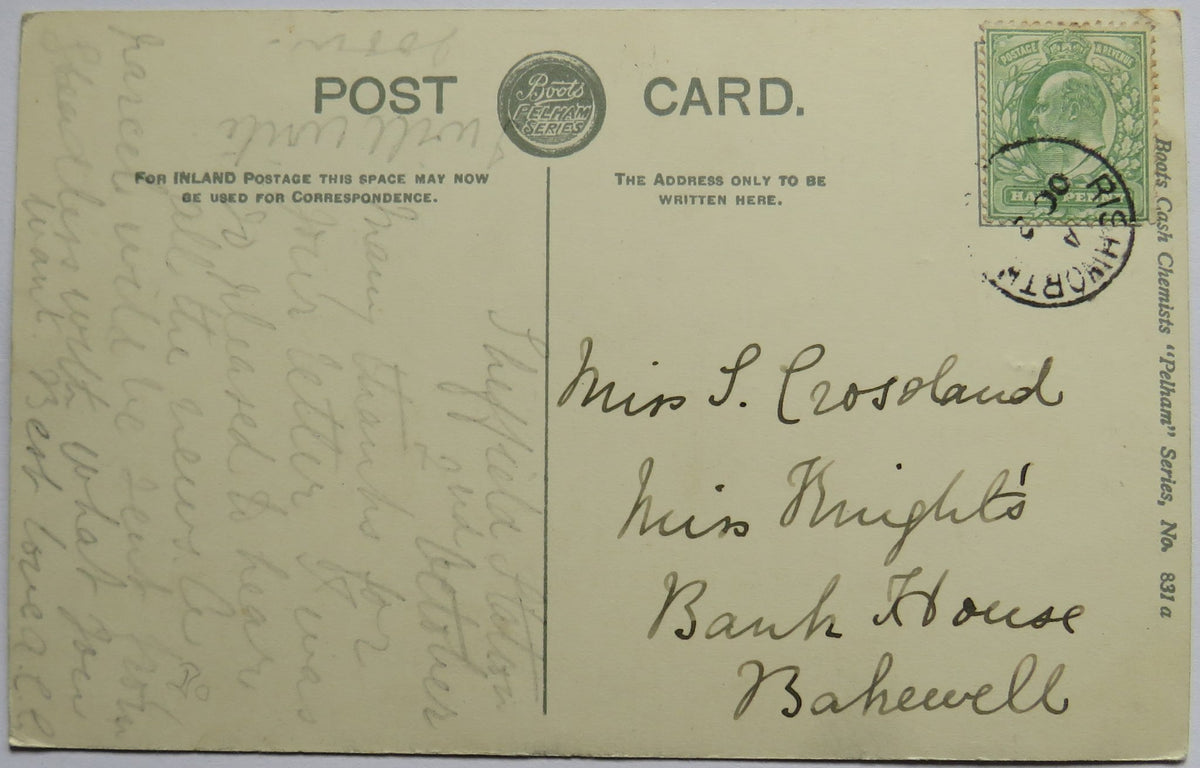 POST CARD.
Boots
PELHAM
SERIES
FOR INLAND POSTAGE THIS SPACE MAY NOW
BE USED FOR CORRESPONDENCE.
THE ADDRESS ONLY TO BE
WRITTEN HERE.
POSTAGE & REVENUE
HALFPENNY
RISHWORTH
OC 4
Miss S. Crosland
Miss Knight's
Bank House
Bakewell
Boots Cash Chemists "Pelham" Series, No. 831a
Sheffield Station
2nd October
Many thanks for
your letter I was
so pleased to hear
all the news. A
parcel will be sent from
Sheadlers with what you
want. Best love all
will write
soon.